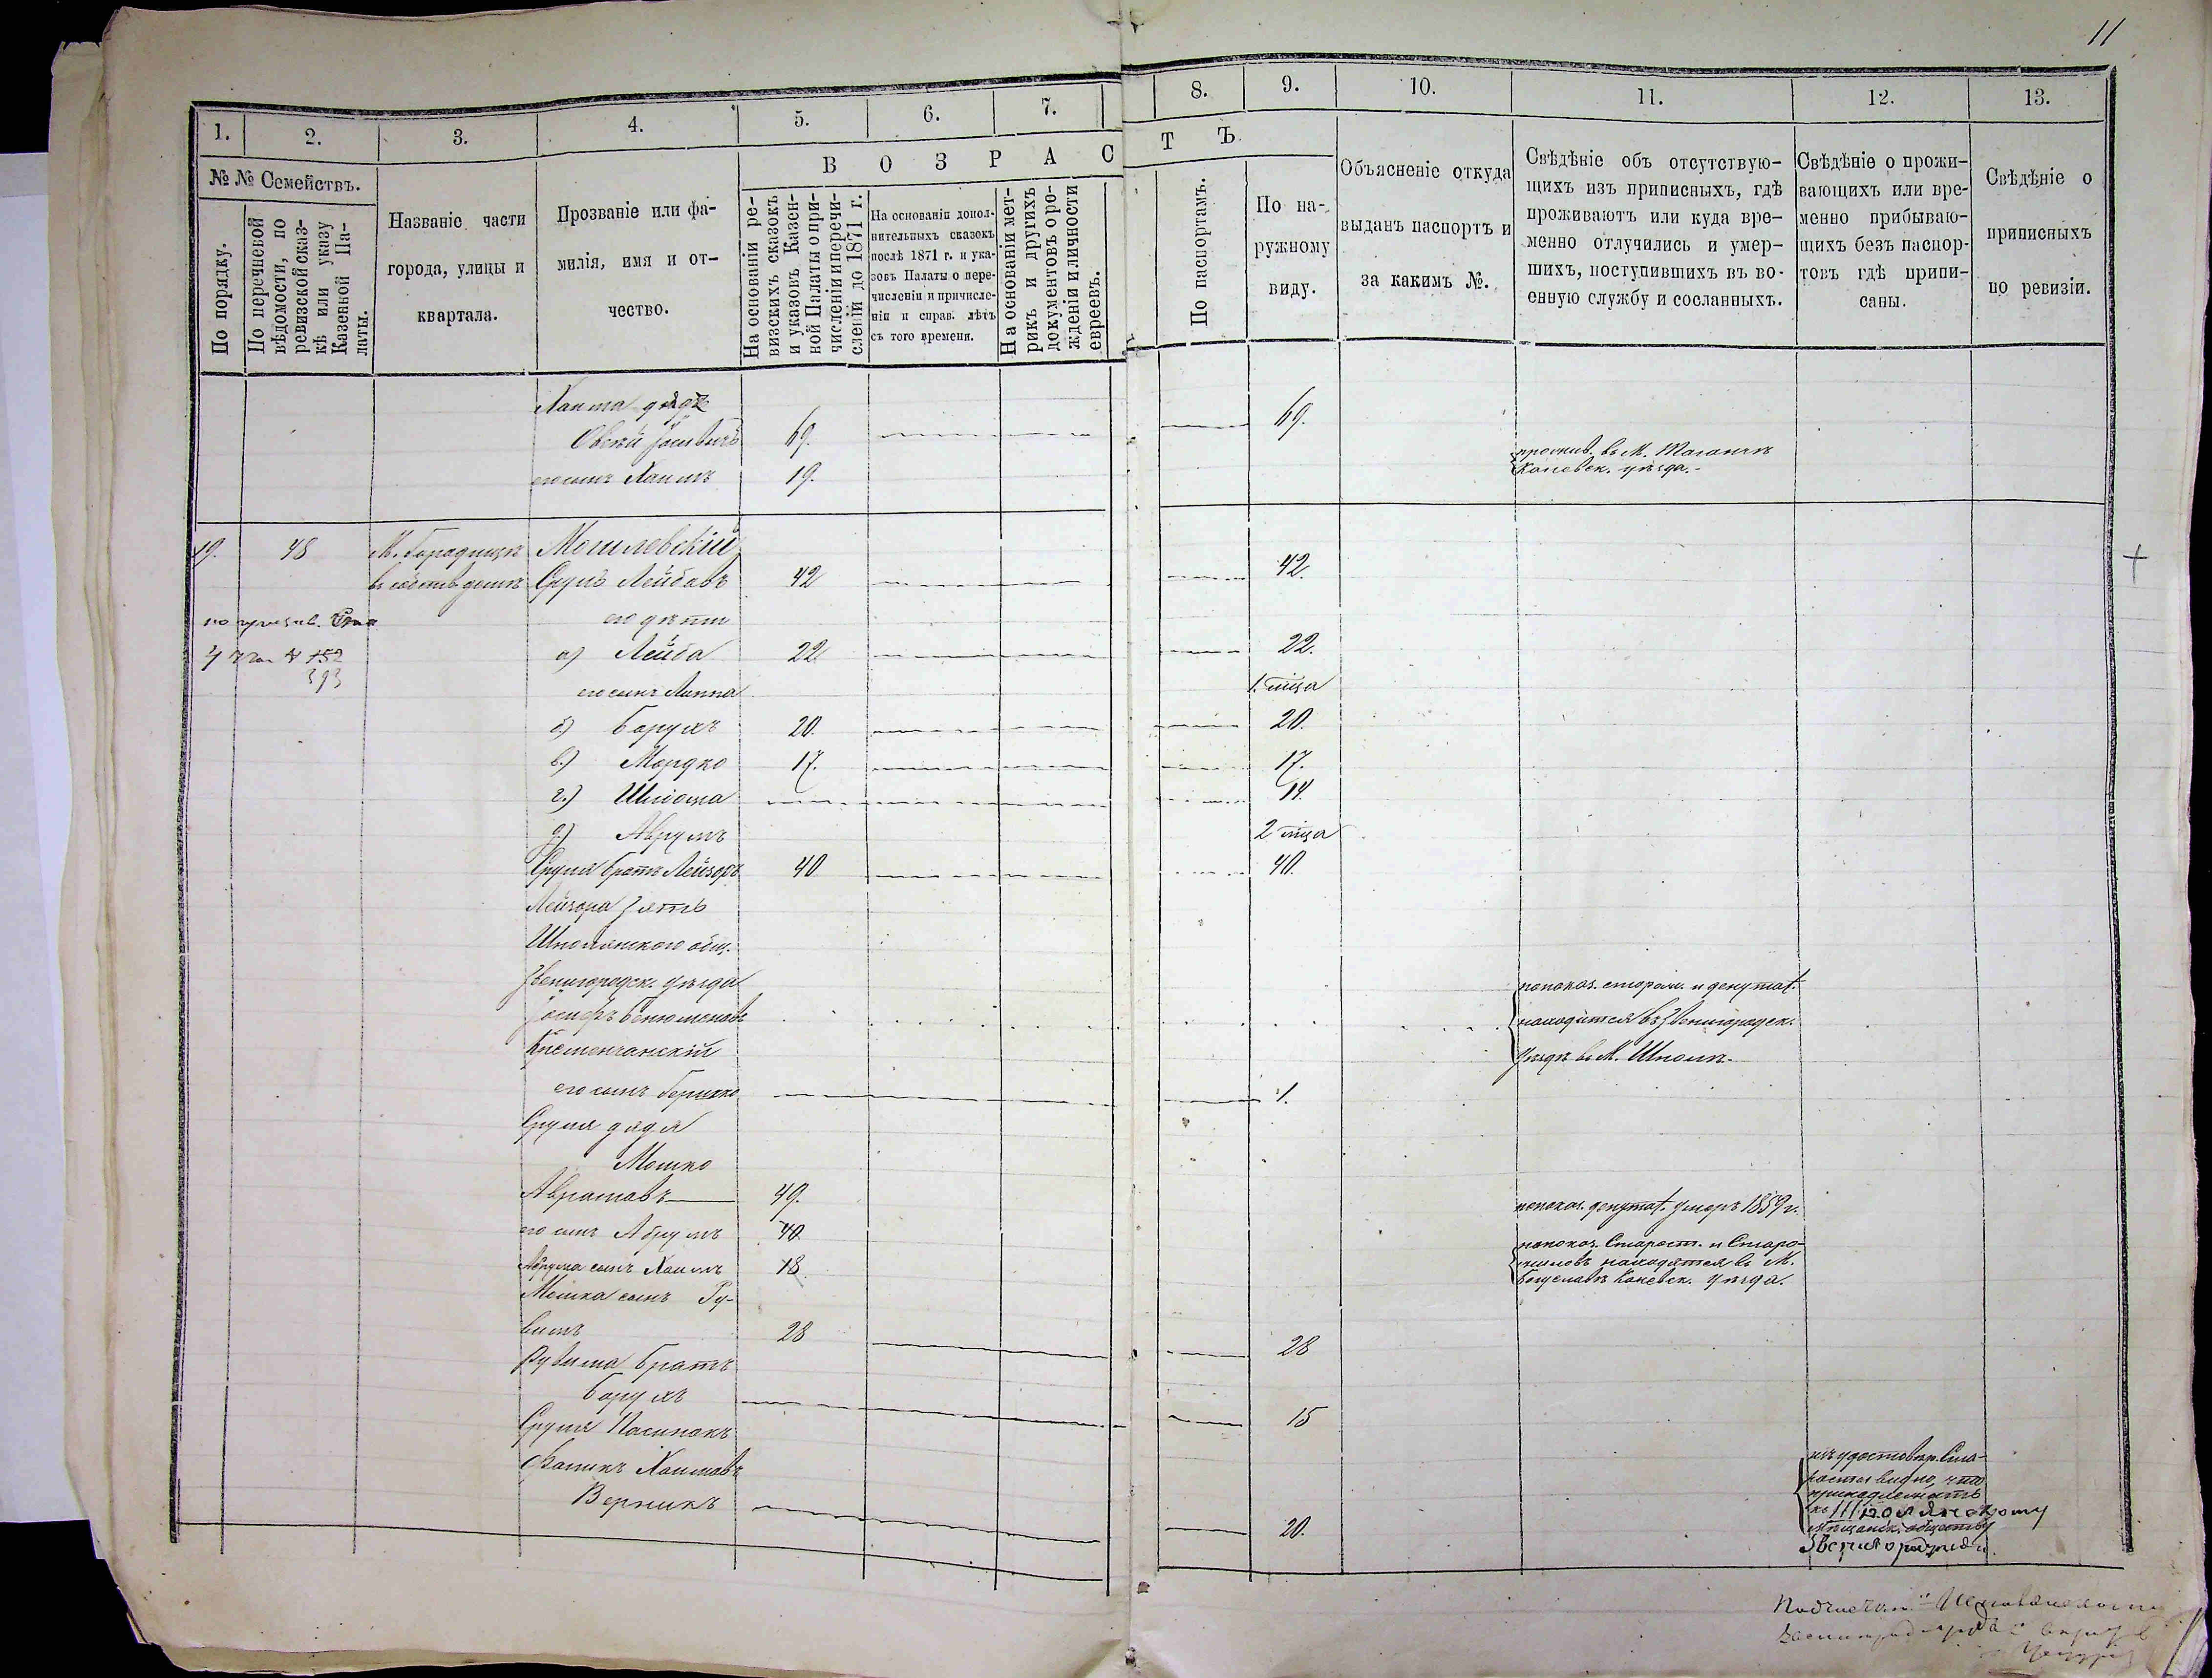 11
1.
2.
3.
4.
5.
6.
7.
8.
9.
10.
11.
12.
13.
№ № Семействъ.
В О З Р А С Т Ъ
По порядку.
По перечневой
вѣдомости, по
ревизской сказ-
кѣ или указу
Казенной Па-
латы.
Названіе части
города, улицы и
квартала.
Прозваніе или фа-
милія, имя и от-
чество.
На основаніи ре-
визскихъ сказокъ
и указовъ Казен-
ной Палаты о при-
численіи и перечи-
сленіи до 1871 г.
На основаніи допол-
нительныхъ сказокъ
послѣ 1871 г. и ука-
зовъ Палаты о пере-
численіи и причисле-
ніи и справ. лѣтъ
съ того времени.
На основаніи мет-
рикъ и другихъ
документовъ о ро-
жденіи и личности
евреевъ.
По паспортамъ.
По на-
ружному
виду.
Объясненіе откуда
выданъ паспортъ и
за какимъ №.
Свѣдѣніе объ отсутствую-
щихъ изъ приписныхъ, гдѣ
проживаютъ или куда вре-
менно отлучились и умер-
шихъ, поступившихъ въ во-
енную службу и сосланныхъ.
Свѣдѣніе о прожи-
вающихъ или вре-
менно прибываю-
щихъ безъ паспор-
товъ гдѣ припи-
саны.
Свѣдѣніе о
приписныхъ
по ревизіи.
Хаима дядя
69. 69.
его сынъ Хаимъ 19.
прожив. въ М. Таганчѣ
Каневск. уѣзда.
19. 48 М. Городищѣ Могилевскій
Сруль Лейбовъ 42 42.
его дѣти
а) Лейба 22 22.
его сынъ Липпа 1. мѣсца
б) Борухъ 20. 20.
в.) Мордко 17. 17.
г.) Шліома 14.
д.) Аврумъ 2 мѣсца
Сруля братъ Лейзоръ 40 40.
Лейзора зять
Шполянскаго общ.
Звенигородск. уѣзда
Кременчанскій
показ. старож. и депутат.
находится въ Звенигородск.
уѣздѣ въ М. Шполѣ.
его сынъ Гершко 1.
Сруля дядя
Мошко
Абрамовъ 49.
показ. депутат. умеръ 1859 г.
его сынъ Абрумъ 40.
Абрума сынъ Хаимъ 18
показ. Старост. и Старо-
жиловъ находятся въ М.
Богуславѣ Каневск. уѣзда.
Мошка сынъ Ру-
вимъ 28 28
Рувима братъ
Борухъ 15
Сруля Пасинокъ
Хаимовъ
Верникъ 20.
изъ удостовѣр. Ста-
росты видно, что
принадлежитъ
къ Шполянскому
мѣщанск. обществу